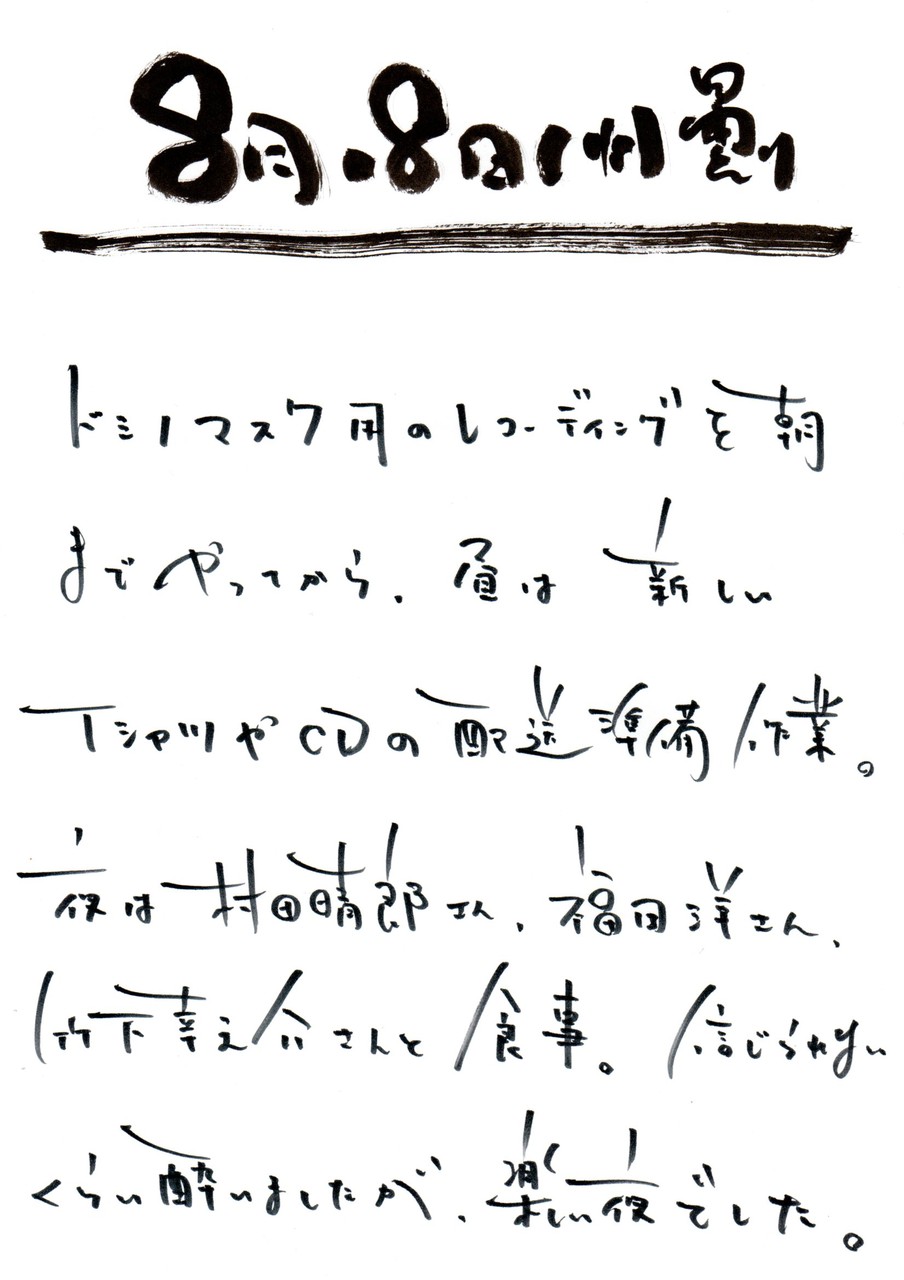 8月.8日(州曇り
ドミノマスク用のレコーディングを朝
までやってから、昼は新しい
TシャツやCDの配送準備作業。
夜は村田晴郎さん、福田洋さん、
竹下幸之介さんと食事。信じられない
くらい酔いましたが、楽しい夜でした。